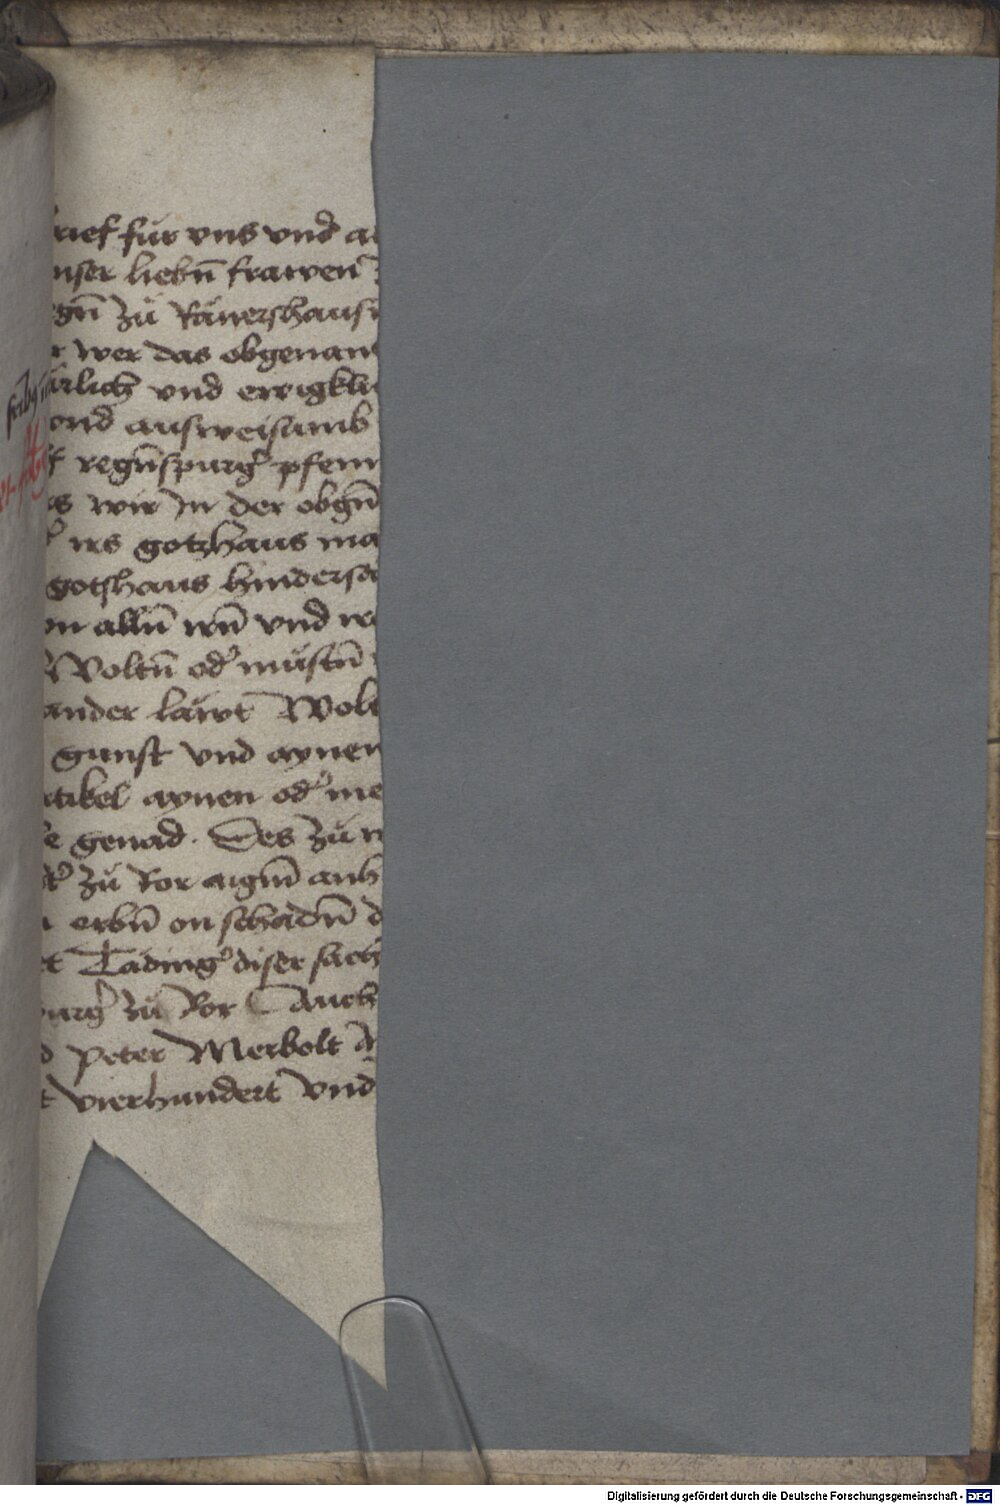 rief für vns vnd al
nser liebn̄ frawen
gn̄ zů Ranershaus
r wer das obgenant
rlich vnd ewigkli
ond ausweisamb
f regn̄spurg' pfenn
s wir in der obgn̄
irs gotzhaus ma
gotshaus hindersa
on alln̄ irn̄ vnd
Woltn̄ od' müstn̄
ander lawt Wolt
gunst vnd aynen
rtikel aynen od' me
e genad. Des zů
zů Ror aigm̄ anh
erbn̄ on schadn̄ d
t Tading' diser sach
urg' zů Ror Auch
d Peter Merbolt
t vierhundert vnd
Digitalisierung gefördert durch die Deutsche Forschungsgemeinschaft - DFG